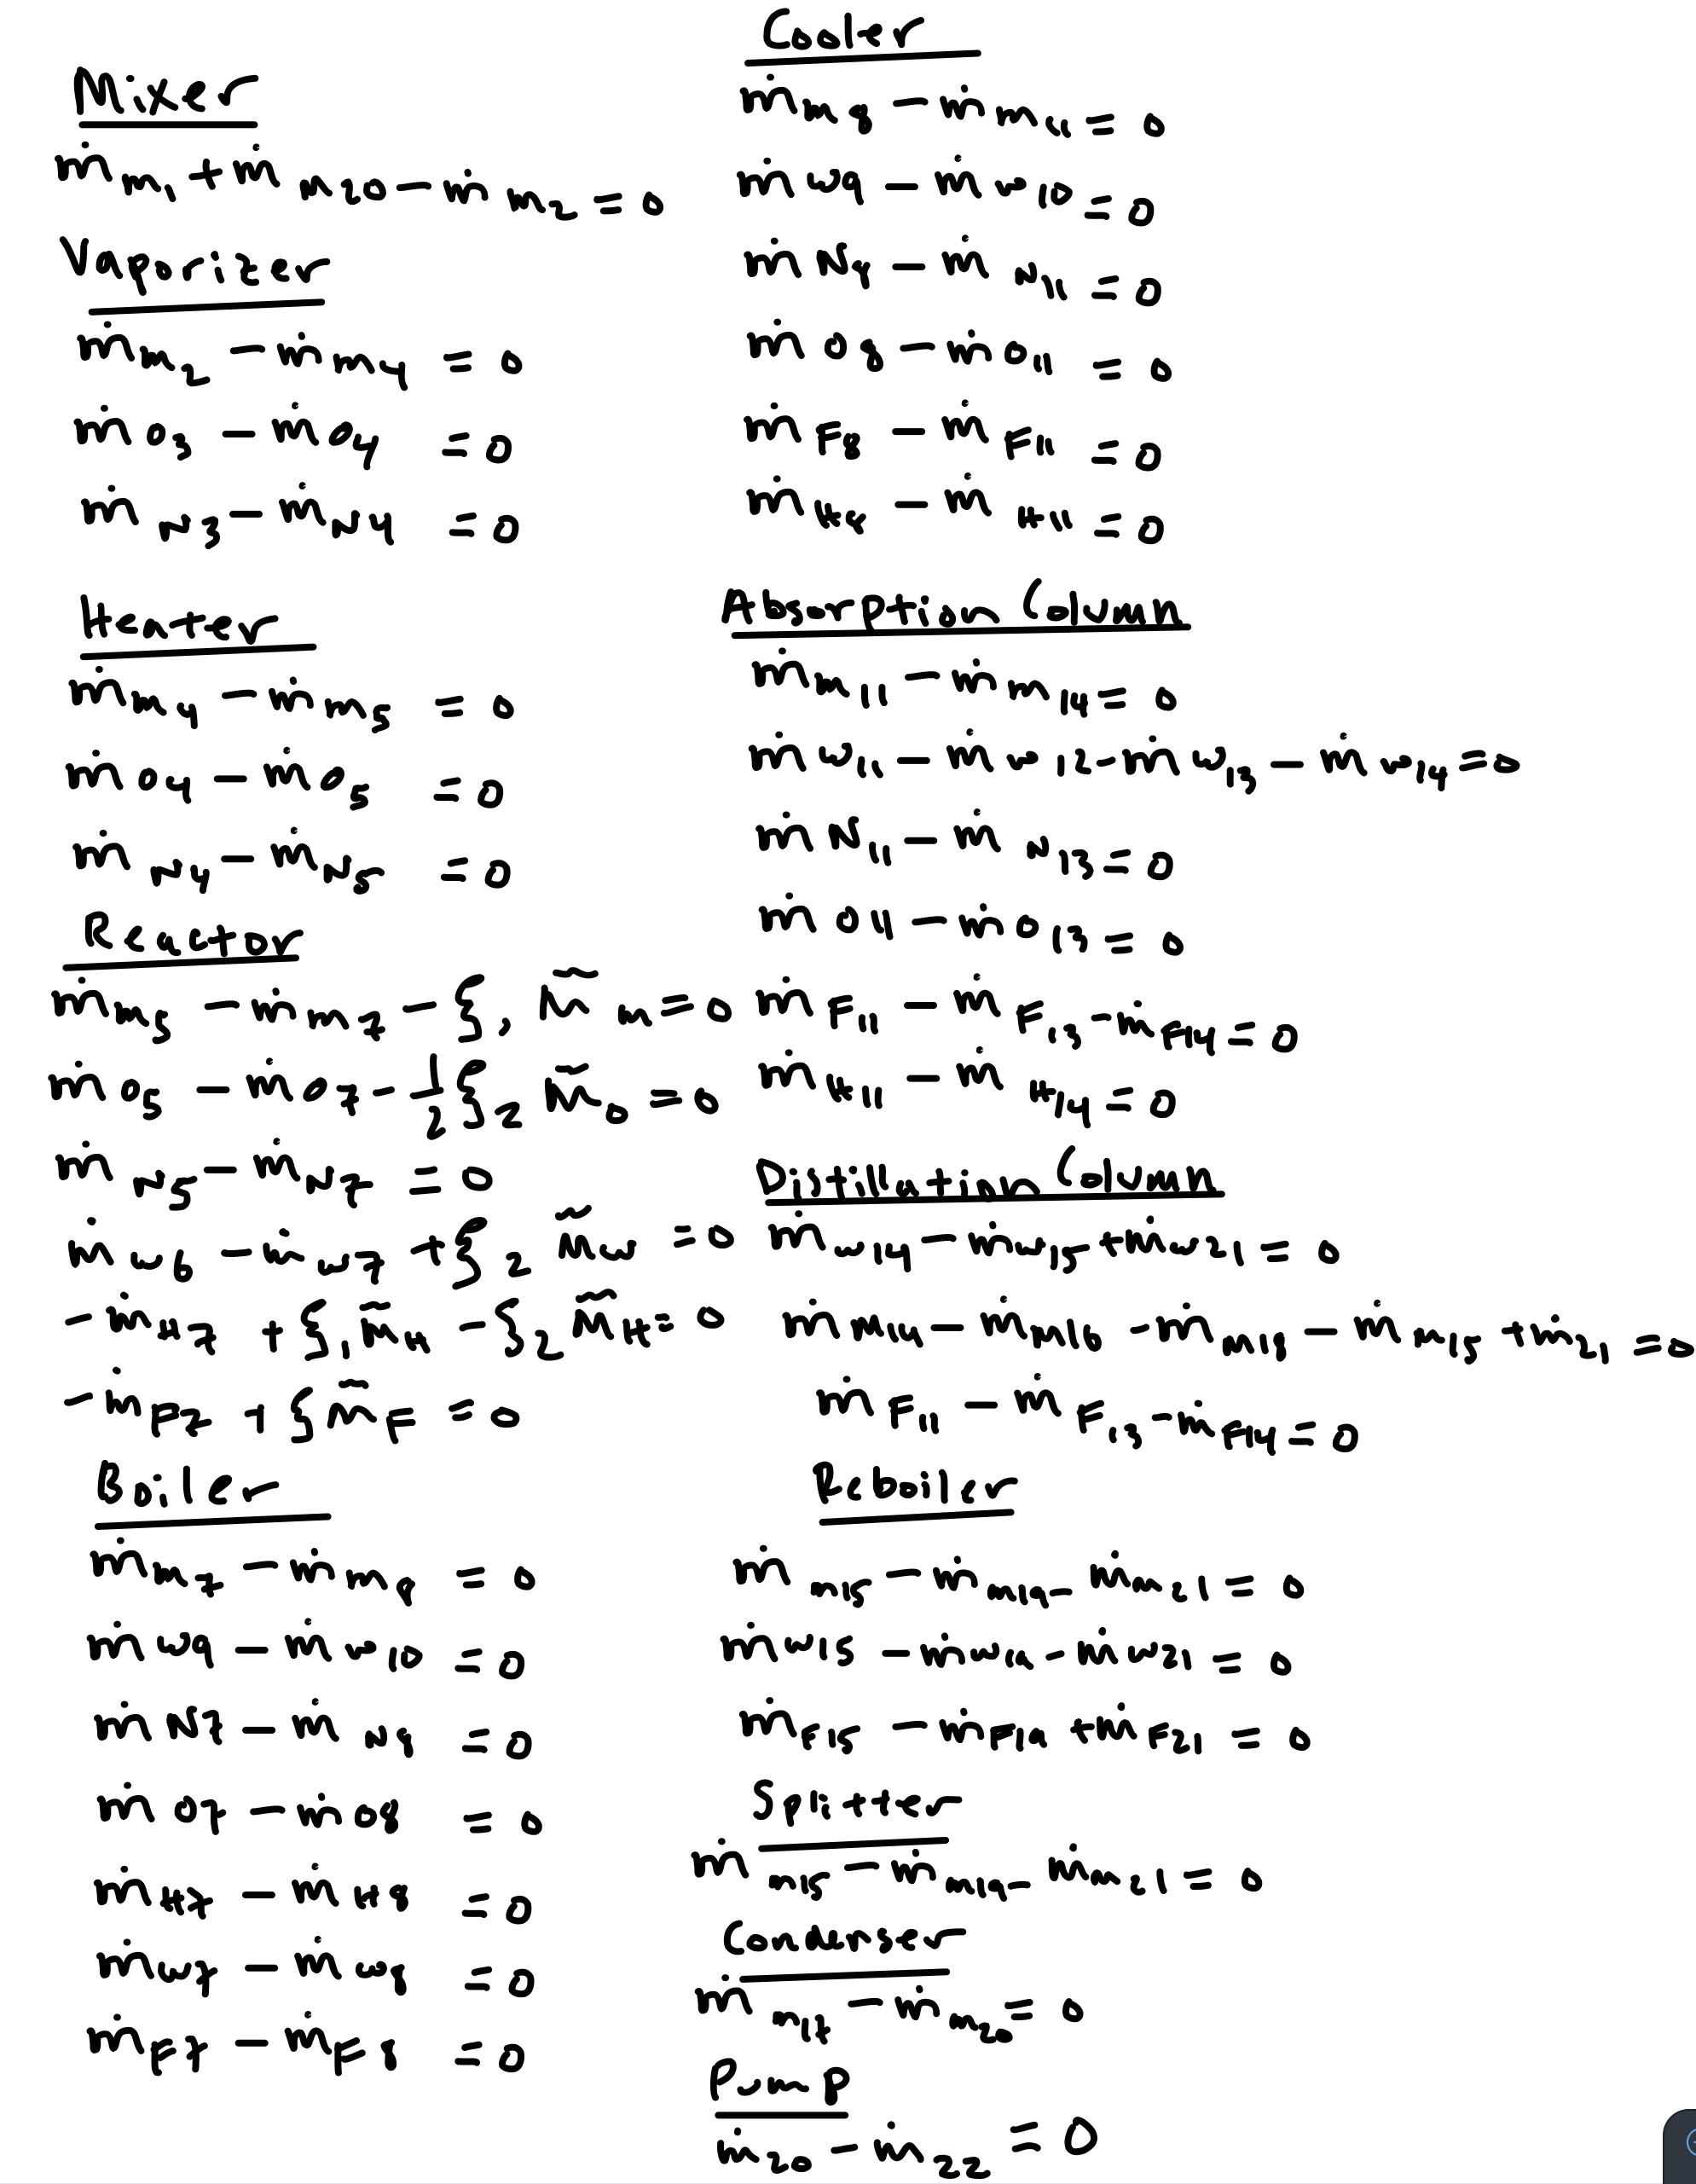 Mixer
ṁ_M1 + ṁ_M20 − ṁ_M2 = 0
Vaporizer
ṁ_M2 − ṁ_M4 = 0
ṁ_O3 − ṁ_O4 = 0
ṁ_N3 − ṁ_N4 = 0
Heater
ṁ_M4 − ṁ_M5 = 0
ṁ_O4 − ṁ_O5 = 0
ṁ_N4 − ṁ_N5 = 0
Reactor
ṁ_M5 − ṁ_M7 − ξ₁ M̃_M = 0
ṁ_O5 − ṁ_O7 − ½ ξ₂ M̃_O = 0
ṁ_N5 − ṁ_N7 = 0
ṁ_W6 − ṁ_W7 + ξ₂ M̃_W = 0
− ṁ_H7 + ξ₁ M̃_H − ξ₂ M̃_H = 0
− ṁ_F7 + ξ M̃_F = 0
Boiler
ṁ_M7 − ṁ_M8 = 0
ṁ_W9 − ṁ_W10 = 0
ṁ_N7 − ṁ_N8 = 0
ṁ_O7 − ṁ_O8 = 0
ṁ_H7 − ṁ_H8 = 0
ṁ_W7 − ṁ_W8 = 0
ṁ_F7 − ṁ_F8 = 0
Cooler
ṁ_M8 − ṁ_M11 = 0
ṁ_W9 − ṁ_W10 = 0
ṁ_N8 − ṁ_N11 = 0
ṁ_O8 − ṁ_O11 = 0
ṁ_F8 − ṁ_F11 = 0
ṁ_H8 − ṁ_H11 = 0
Absorption Column
ṁ_M11 − ṁ_M14 = 0
ṁ_W11 − ṁ_W12 − ṁ_W13 − ṁ_W14 = 0
ṁ_N11 − ṁ_N13 = 0
ṁ_O11 − ṁ_O13 = 0
ṁ_F11 − ṁ_F13 − ṁ_F14 = 0
ṁ_H11 − ṁ_H14 = 0
Distillation Column
ṁ_W14 − ṁ_W15 + ṁ_W21 = 0
ṁ_M14 − ṁ_M16 − ṁ_M18 − ṁ_M15 + ṁ_21 = 0
ṁ_F11 − ṁ_F13 − ṁ_F14 = 0
Reboiler
ṁ_M15 − ṁ_M19 − ṁ_M21 = 0
ṁ_W15 − ṁ_W19 − ṁ_W21 = 0
ṁ_F15 − ṁ_F19 + ṁ_F21 = 0
Splitter
ṁ_M15 − ṁ_M19 − ṁ_M21 = 0
Condenser
ṁ_M17 − ṁ_M20 = 0
Pump
ṁ_20 − ṁ_22 = 0